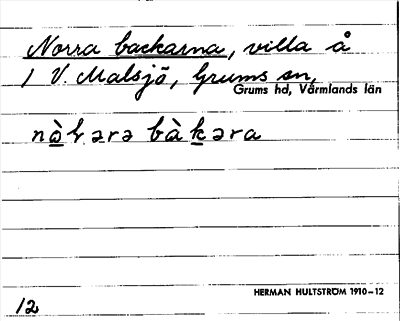 Norra backarna, villa å
1 V. Malsjö, Grums sn,
Grums hd, Värmlands län
bàkara
HERMAN HULTSTRÖM 1910–12
12